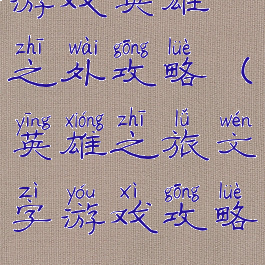 游戏英雄
zhī wài gōng lüè
之外攻略（
yīng xióng zhī lǚ wén
英雄之旅文
zì yóu xì gōng lüè
字游戏攻略